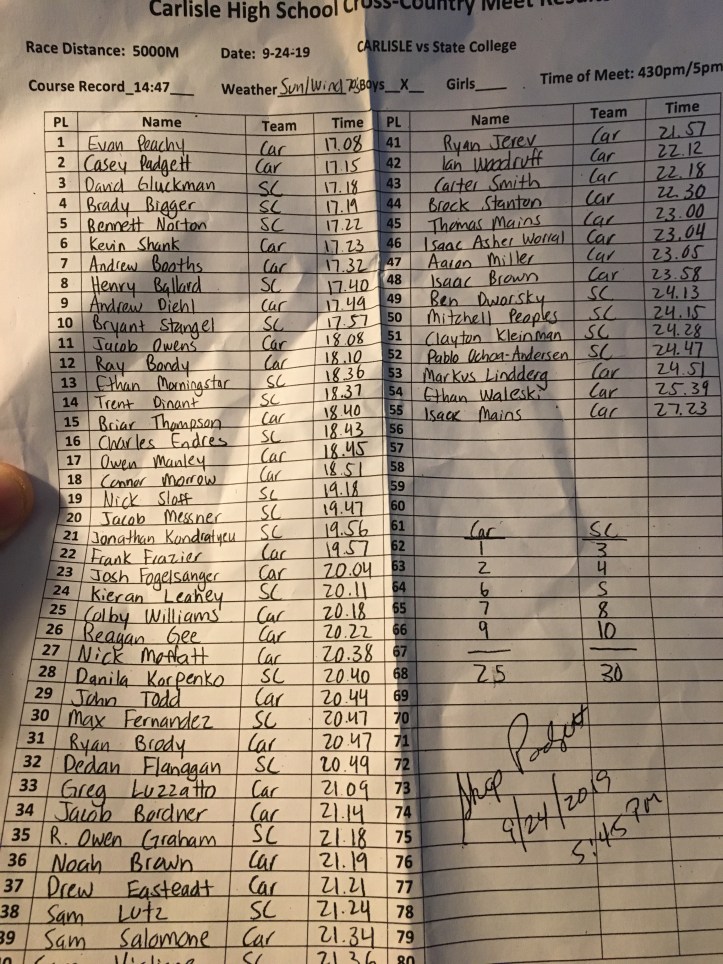 Carlisle High School Cross-Country Meet Results
Race Distance: 5000M Date: 9-24-19 CARLISLE vs State College
Course Record_14:47___ Weather Sun/Wind 70's Boys__X__ Girls____ Time of Meet: 430pm/5pm
PL Name Team Time PL Name Team Time
1 Evan Peachy Car 17.08 41 Ryan Jerev Car 21.57
2 Casey Padgett Car 17.15 42 Ian Woodruff Car 22.12
3 David Gluckman SC 17.18 43 Carter Smith Car 22.18
4 Brady Bigger SC 17.19 44 Brock Stanton Car 22.30
5 Bennett Norton SC 17.22 45 Thomas Mains Car 23.00
6 Kevin Shank Car 17.23 46 Isaac Asher Worral Car 23.04
7 Andrew Booths Car 17.32 47 Aaron Miller Car 23.05
8 Henry Ballard SC 17.40 48 Isaac Brown Car 23.58
9 Andrew Diehl Car 17.49 49 Ben Dworsky SC 24.13
10 Bryant Stangel SC 17.57 50 Mitchell Peoples SC 24.15
11 Jacob Owens Car 18.08 51 Clayton Kleinman SC 24.28
12 Ray Bondy Car 18.10 52 Pablo Ochoa-Andersen SC 24.47
13 Ethan Morningstar SC 18.36 53 Markus Lindderg Car 24.51
14 Trent Dinant SC 18.37 54 Ethan Waleski Car 25.39
15 Briar Thompson Car 18.40 55 Isaac Mains Car 27.23
16 Charles Endres SC 18.43 56
17 Owen Manley Car 18.45 57
18 Connor Morrow Car 18.51 58
19 Nick Sloff SC 19.18 59
20 Jacob Messner SC 19.47 60
21 Jonathan Kondratyeu SC 19.56 61 Car SC
22 Frank Frazier Car 19.57 62 1 3
23 Josh Fogelsanger Car 20.04 63 2 4
24 Kieran Leahey SC 20.11 64 6 5
25 Colby Williams Car 20.18 65 7 8
26 Reagan Gee Car 20.22 66 9 10
27 Nick Moffatt Car 20.38 67
28 Danila Korpenko SC 20.40 68 25 30
29 John Todd Car 20.44 69
30 Max Fernandez SC 20.47 70
31 Ryan Brody Car 20.47 71 Padgett
32 Dedan Flanagan SC 20.49 72
33 Greg Luzzatto Car 21.09 73
34 Jacob Bordner Car 21.14 74 9/24/2019
35 R. Owen Graham SC 21.18 75 5:45 PM
36 Noah Brown Car 21.19 76
37 Drew Easteadt Car 21.21 77
38 Sam Lutz SC 21.24 78
39 Sam Salomone Car 21.34 79
SC 21.36 80